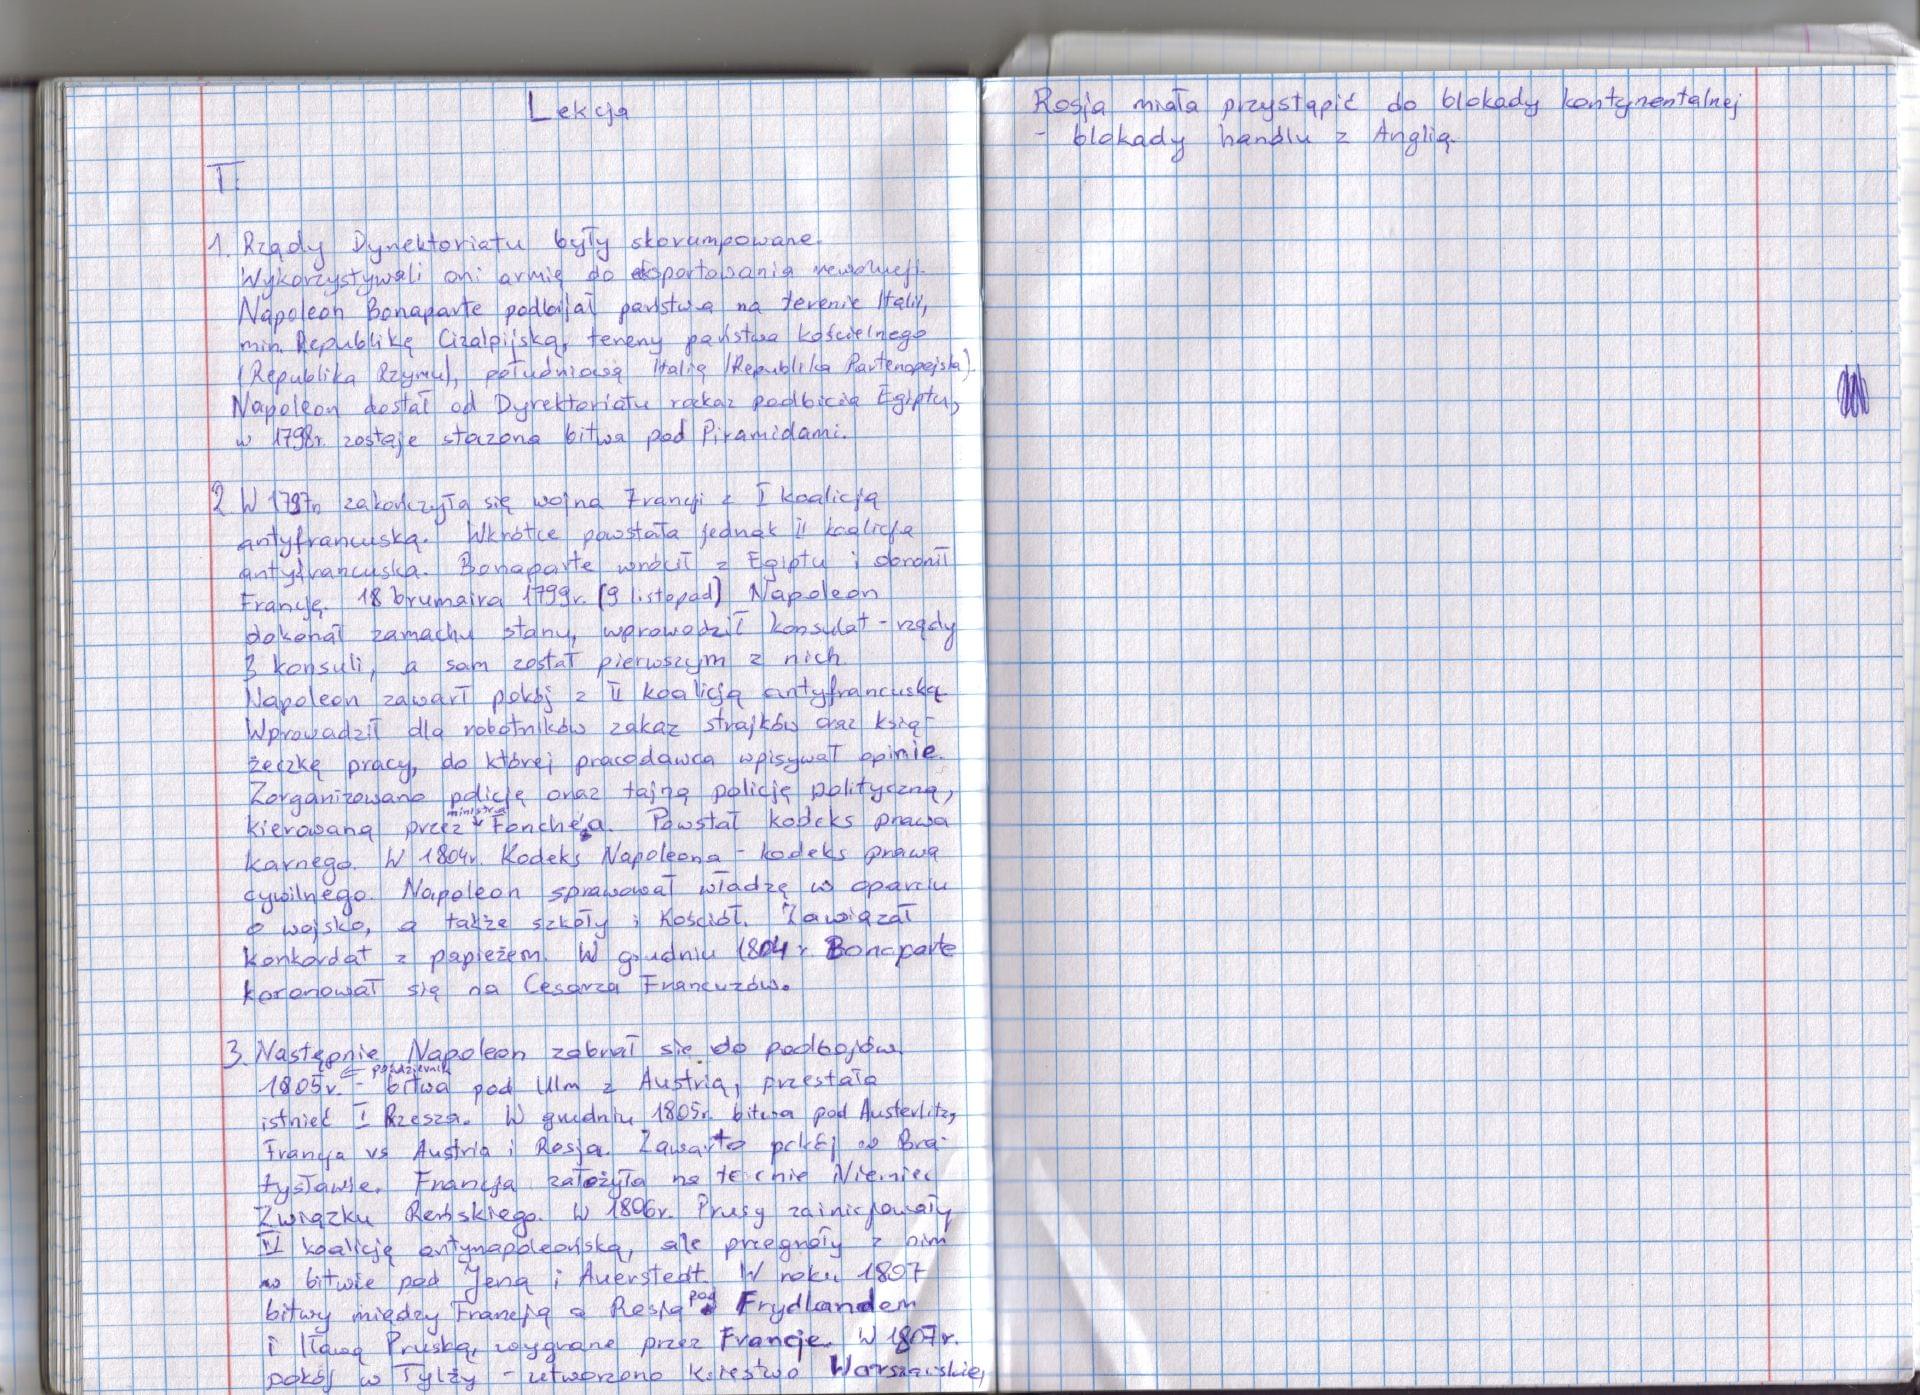 Lekcja
T:
1. Rządy Dyrektoriatu były skorumpowane.
Wykorzystywali oni armię do eksportowania rewolucji.
Napoleon Bonaparte podbijał państwa na terenie Italii,
min. Republikę Cizalpijską, tereny państwa kościelnego
(Republika Rzymu), południową Italię (Republika Partenopejska).
Napoleon dostał od Dyrektoriatu rozkaz podbicia Egiptu,
w 1798r. zostaje stoczona bitwa pod Piramidami.
2. W 1797r. zakończyła się wojna Francji z I koalicją
antyfrancuską. Wkrótce powstała jednak II koalicja
antyfrancuska. Bonaparte wrócił z Egiptu i obronił
Francję. 18 brumaira 1799r. (9 listopad) Napoleon
dokonał zamachu stanu, wprowadził konsulat - rządy
3 konsuli, a sam został pierwszym z nich.
Napoleon zawarł pokój z II koalicją antyfrancuską.
Wprowadził dla robotników zakaz strajków oraz ksią-
żeczkę pracy, do której pracodawca wpisywał opinie.
Zorganizowano policję oraz tajną policję polityczną,
kierowaną przez ministra Fonché'a. Powstał kodeks prawa
karnego. W 1804r. Kodeks Napoleona - kodeks prawa
cywilnego. Napoleon sprawował władzę w oparciu
o wojsko, a także szkoły i Kościół. Zawiązał
konkordat z papieżem. W grudniu 1804 r. Bonaparte
koronował się na Cesarza Francuzów.
3. Następnie Napoleon zabrał się do podbojów.
1805r. ← październik - bitwa pod Ulm z Austrią, przestała
istnieć I Rzesza. W grudniu 1805r. bitwa pod Austerlitz,
Francja vs Austria i Rosja. Zawarto pokój w Bra-
tysławie. Francja założyła na terenie Niemiec
Związku Reńskiego. W 1806r. Prusy zainicjowały
IV koalicję antynapoleońską, ale przegrały z nim
w bitwie pod Jeną i Auerstedt. W roku 1807
bitwy między Francją a Rosją pod Frydlandem
i Iławą Pruską, wygrane przez Francję. W 1807r.
pokój w Tylży - utworzono Księstwo Warszawskie,
Rosja miała przystąpić do blokady kontynentalnej
- blokady handlu z Anglią.